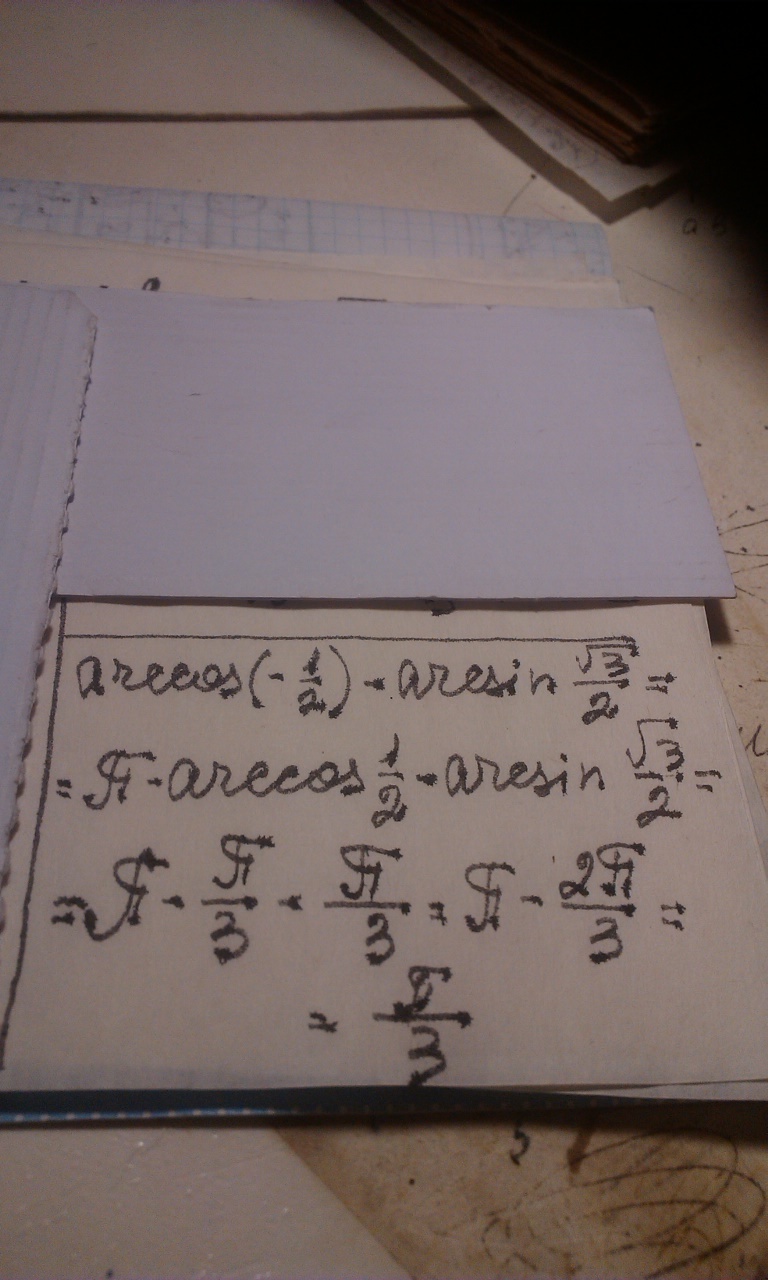 arccos(-1/2) - arcsin √3/2 =
= π - arccos 1/2 - arcsin √3/2 =
= π - π/3 - π/3 = π - 2π/3 =
= π/3